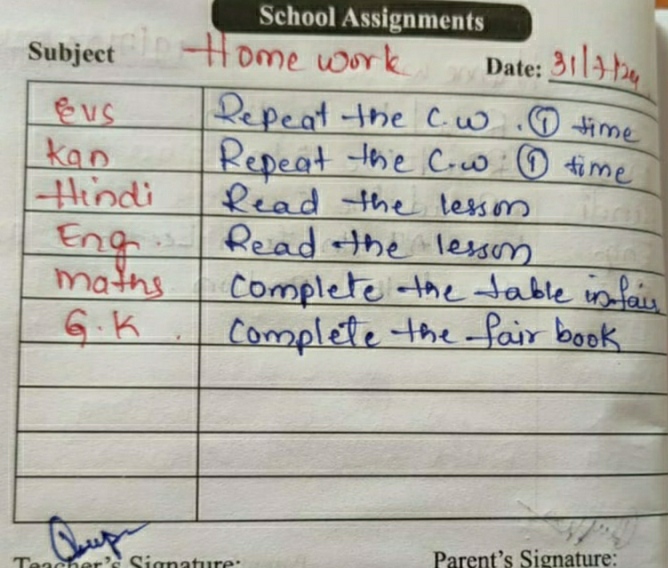 School Assignments
Subject Home work Date: 31/7/24
EVS Repeat the C.W. ① time
Kan Repeat the C.W. ① time
Hindi Read the lesson
Eng. Read the lesson
maths Complete the table in fair
G.K. Complete the fair book
Teacher's Signature: Parent's Signature: